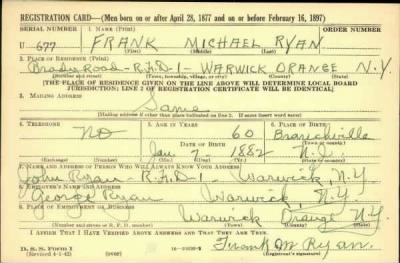 REGISTRATION CARD—(Men born on or after April 28, 1877 and on or before February 16, 1897)
SERIAL NUMBER 1. NAME (Print) ORDER NUMBER
U 677 FRANK MICHAEL RYAN
(First) (Middle) (Last)
2. PLACE OF RESIDENCE (Print)
Brady Road - R.F.D 1 - WARWICK ORANGE N.Y.
(Number and street) (Town, township, village, or city) (County) (State)
[THE PLACE OF RESIDENCE GIVEN ON THE LINE ABOVE WILL DETERMINE LOCAL BOARD
JURISDICTION; LINE 2 OF REGISTRATION CERTIFICATE WILL BE IDENTICAL]
3. MAILING ADDRESS
Same
[Mailing address if other than place indicated on line 2. If same insert word same]
4. TELEPHONE 5. AGE IN YEARS 6. PLACE OF BIRTH
NO 60 Branchville
DATE OF BIRTH (Town or county)
Jan 7 1882 N.J.
(Exchange) (Number) (Mo.) (Day) (Yr.) (State or country)
7. NAME AND ADDRESS OF PERSON WHO WILL ALWAYS KNOW YOUR ADDRESS
John Ryan - R.F.D 1 Warwick, N.Y.
8. EMPLOYER'S NAME AND ADDRESS
George Ryan Warwick, N.Y.
9. PLACE OF EMPLOYMENT OR BUSINESS
Warwick Orange N.Y.
(Number and street or R. F. D. number) (Town) (County) (State)
I AFFIRM THAT I HAVE VERIFIED ABOVE ANSWERS AND THAT THEY ARE TRUE.
D. S. S. Form 1
(Revised 4-1-42) (over)
Frank M Ryan.
(Registrant's signature)